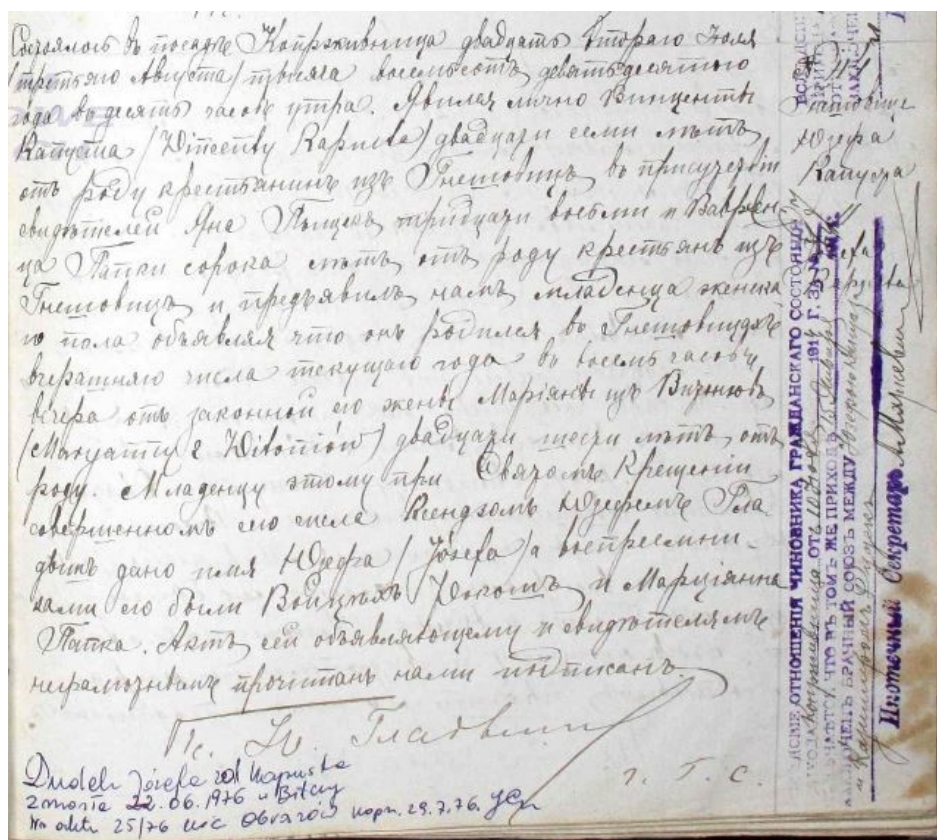 Состоялось въ посадѣ Копрживница двадцать втораго Іюля
/третьяго Августа/ тысяча восемьсотъ девятьдесятого
года въ десять часовъ утра. Явился лично Винценты
Капуста /Wincenty Kapusta/ двадцати семи лѣтъ
отъ роду крестьянинъ изъ Гнешовицъ, въ присутствіи
свидѣтелей Яна тридцати восьми иВаврен
ца Папки сорока лѣтъ отъ роду крестьянъ изъ
Гнешовицъ и предъявилъ намъ младенца женска
го пола объявляя что онъ родился въ Гнешовицахъ
вчерашняго числа текущаго года въ восемь часовъ
вечера отъ законной его жены Маріянны изъ
/Maryanny z Witoniów/ двадцати шести лѣтъ отъ
роду. Младенцу этому при Святомъ Крещеніи
совершенномъ сего числа Ксендзомъ Юзефомъ Гла
двинъ дано имя Юзефа /Józefa/ а воспреемни-
ками его были Войцѣхъ и Марціанна
Папка. Актъ сей объявляющему и свидѣтелямъ
неграмотнымъ прочитанъ нами подписанъ.
Кс. Ю. Гладвин
г. Г. С.
Dudek Józefa zd Kapusta
zmarła 22.06.1976 w
Nr aktu 25/76 usc Obrazów 29.7.76.
Гнешовице
Юзефа
Капуста
ОТНОШЕНІЯ ЧИНОВНИКА ГРАЖДАНСКАГО СОСТОЯНІЯ
Копрживница ОТЪ 1911 Г. ЗА №
ЧТО ВЪ ТОМЪ ЖЕ ПРИХОДѢ
БРАЧНЫЙ СОЮЗЪ МЕЖДУ
Ипотечный Секретарь